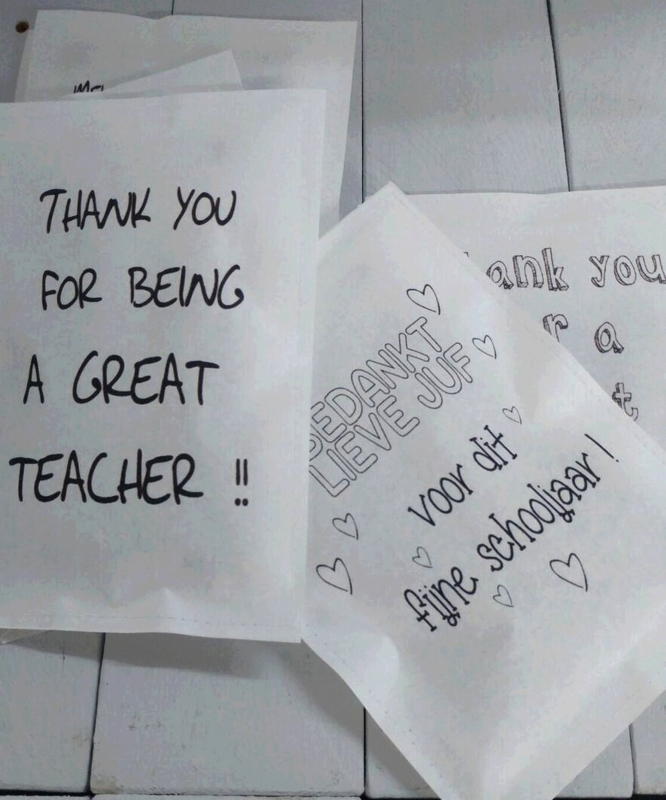 THANK YOU
FOR BEING
A GREAT
TEACHER !!
BEDANKT
LIEVE JUF
voor dit
fijne schooljaar !
you
a